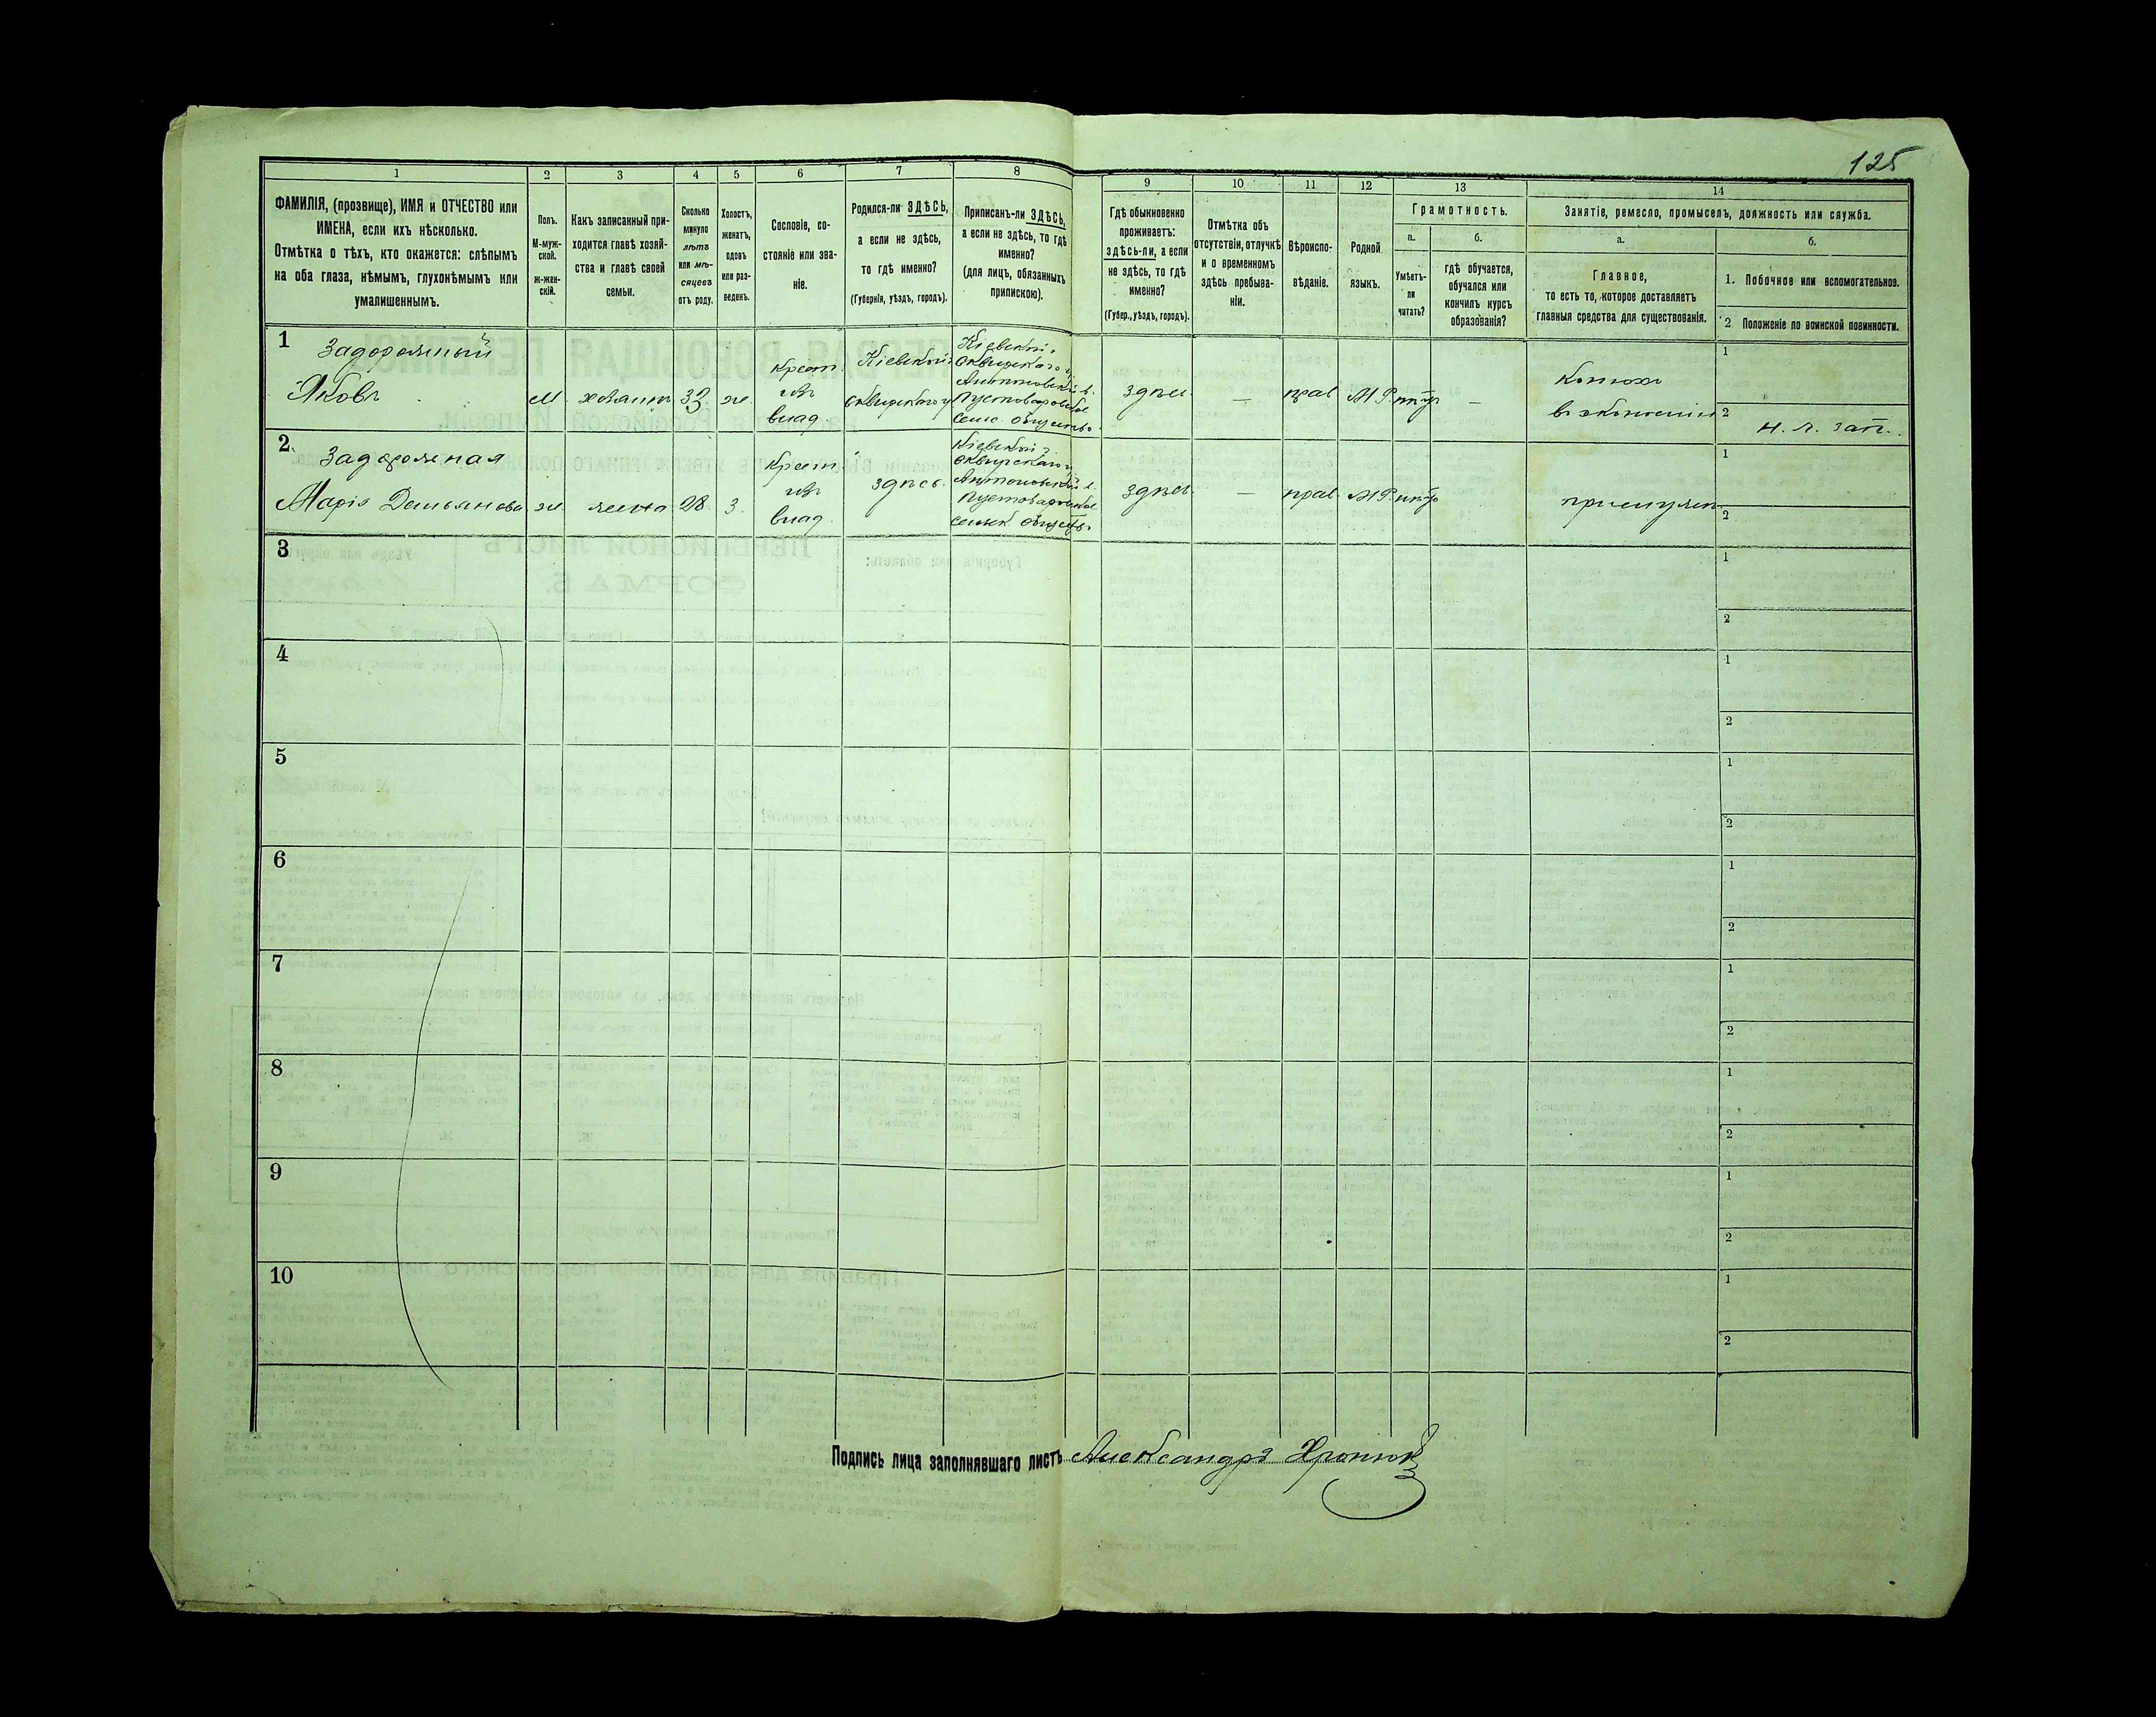 125
1
2
3
4
5
6
7
8
9
10
11
12
13
14
ФАМИЛІЯ, (прозвище), ИМЯ и ОТЧЕСТВО или
ИМЕНА, если ихъ нѣсколько.
Отмѣтка о тѣхъ, кто окажется: слѣпымъ
на оба глаза, нѣмымъ, глухонѣмымъ или
умалишеннымъ.
Полъ.
М-муж-
ской.
ж-жен-
скій.
Какъ записанный при-
ходится главѣ хозяй-
ства и главѣ своей
семьи.
Сколько
минуло
лѣтъ
или мѣ-
сяцевъ
отъ роду.
Холостъ,
женатъ,
вдовъ
или раз-
веденъ.
Сословіе, со-
стояніе или зва-
ніе.
Родился-ли ЗДѢСЬ,
а если не здѣсь,
то гдѣ именно?
(Губернія, уѣздъ, городъ).
Приписанъ-ли ЗДѢСЬ,
а если не здѣсь, то гдѣ
именно?
(для лицъ, обязанныхъ
припискою).
Гдѣ обыкновенно
проживаетъ:
здѣсь-ли, а если
не здѣсь, то гдѣ
именно?
(Губер., уѣздъ, городъ).
Отмѣтка объ
отсутствіи, отлучкѣ
и о временномъ
здѣсь пребыва-
ніи.
Вѣроиспо-
вѣданіе.
Родной
языкъ.
Грамотность.
а.
Умѣетъ-
ли
читать?
б.
гдѣ обучается,
обучался или
кончилъ курсъ
образованія?
Занятіе, ремесло, промыселъ, должность или служба.
а.
Главное,
то есть то, которое доставляетъ
главныя средства для существованія.
б.
1. Побочное или вспомогательное.
2 Положеніе по воинской повинности.
1
Задорожный
Яковъ
М
хозяинъ
33
ж.
Крест.
изъ
влад.
Кіевской г.
Сквирскаго у
Кіевской г.
Сквирскаго у.
Антоновской в.
Пустоваровское
сельс. общество
здѣсь
—
прав
М Р
нѣтъ
—
Конюхъ
въ экономіи
1
2
н. г. зап.
2.
Задорожная
Марія Демьянова
ж.
жена
28.
3.
Крест.
изъ
влад.
здѣсь.
Кіевской г.
Сквирскаго у.
Антоновской в.
Пустоваровское
сельск общество
здѣсь.
—
прав.
М Р.
нѣтъ
при мужѣ
1
2
3
1
2
4
1
2
5
1
2
6
1
2
7
1
2
8
1
2
9
1
2
10
1
2
Подпись лица заполнявшаго листъ Александръ